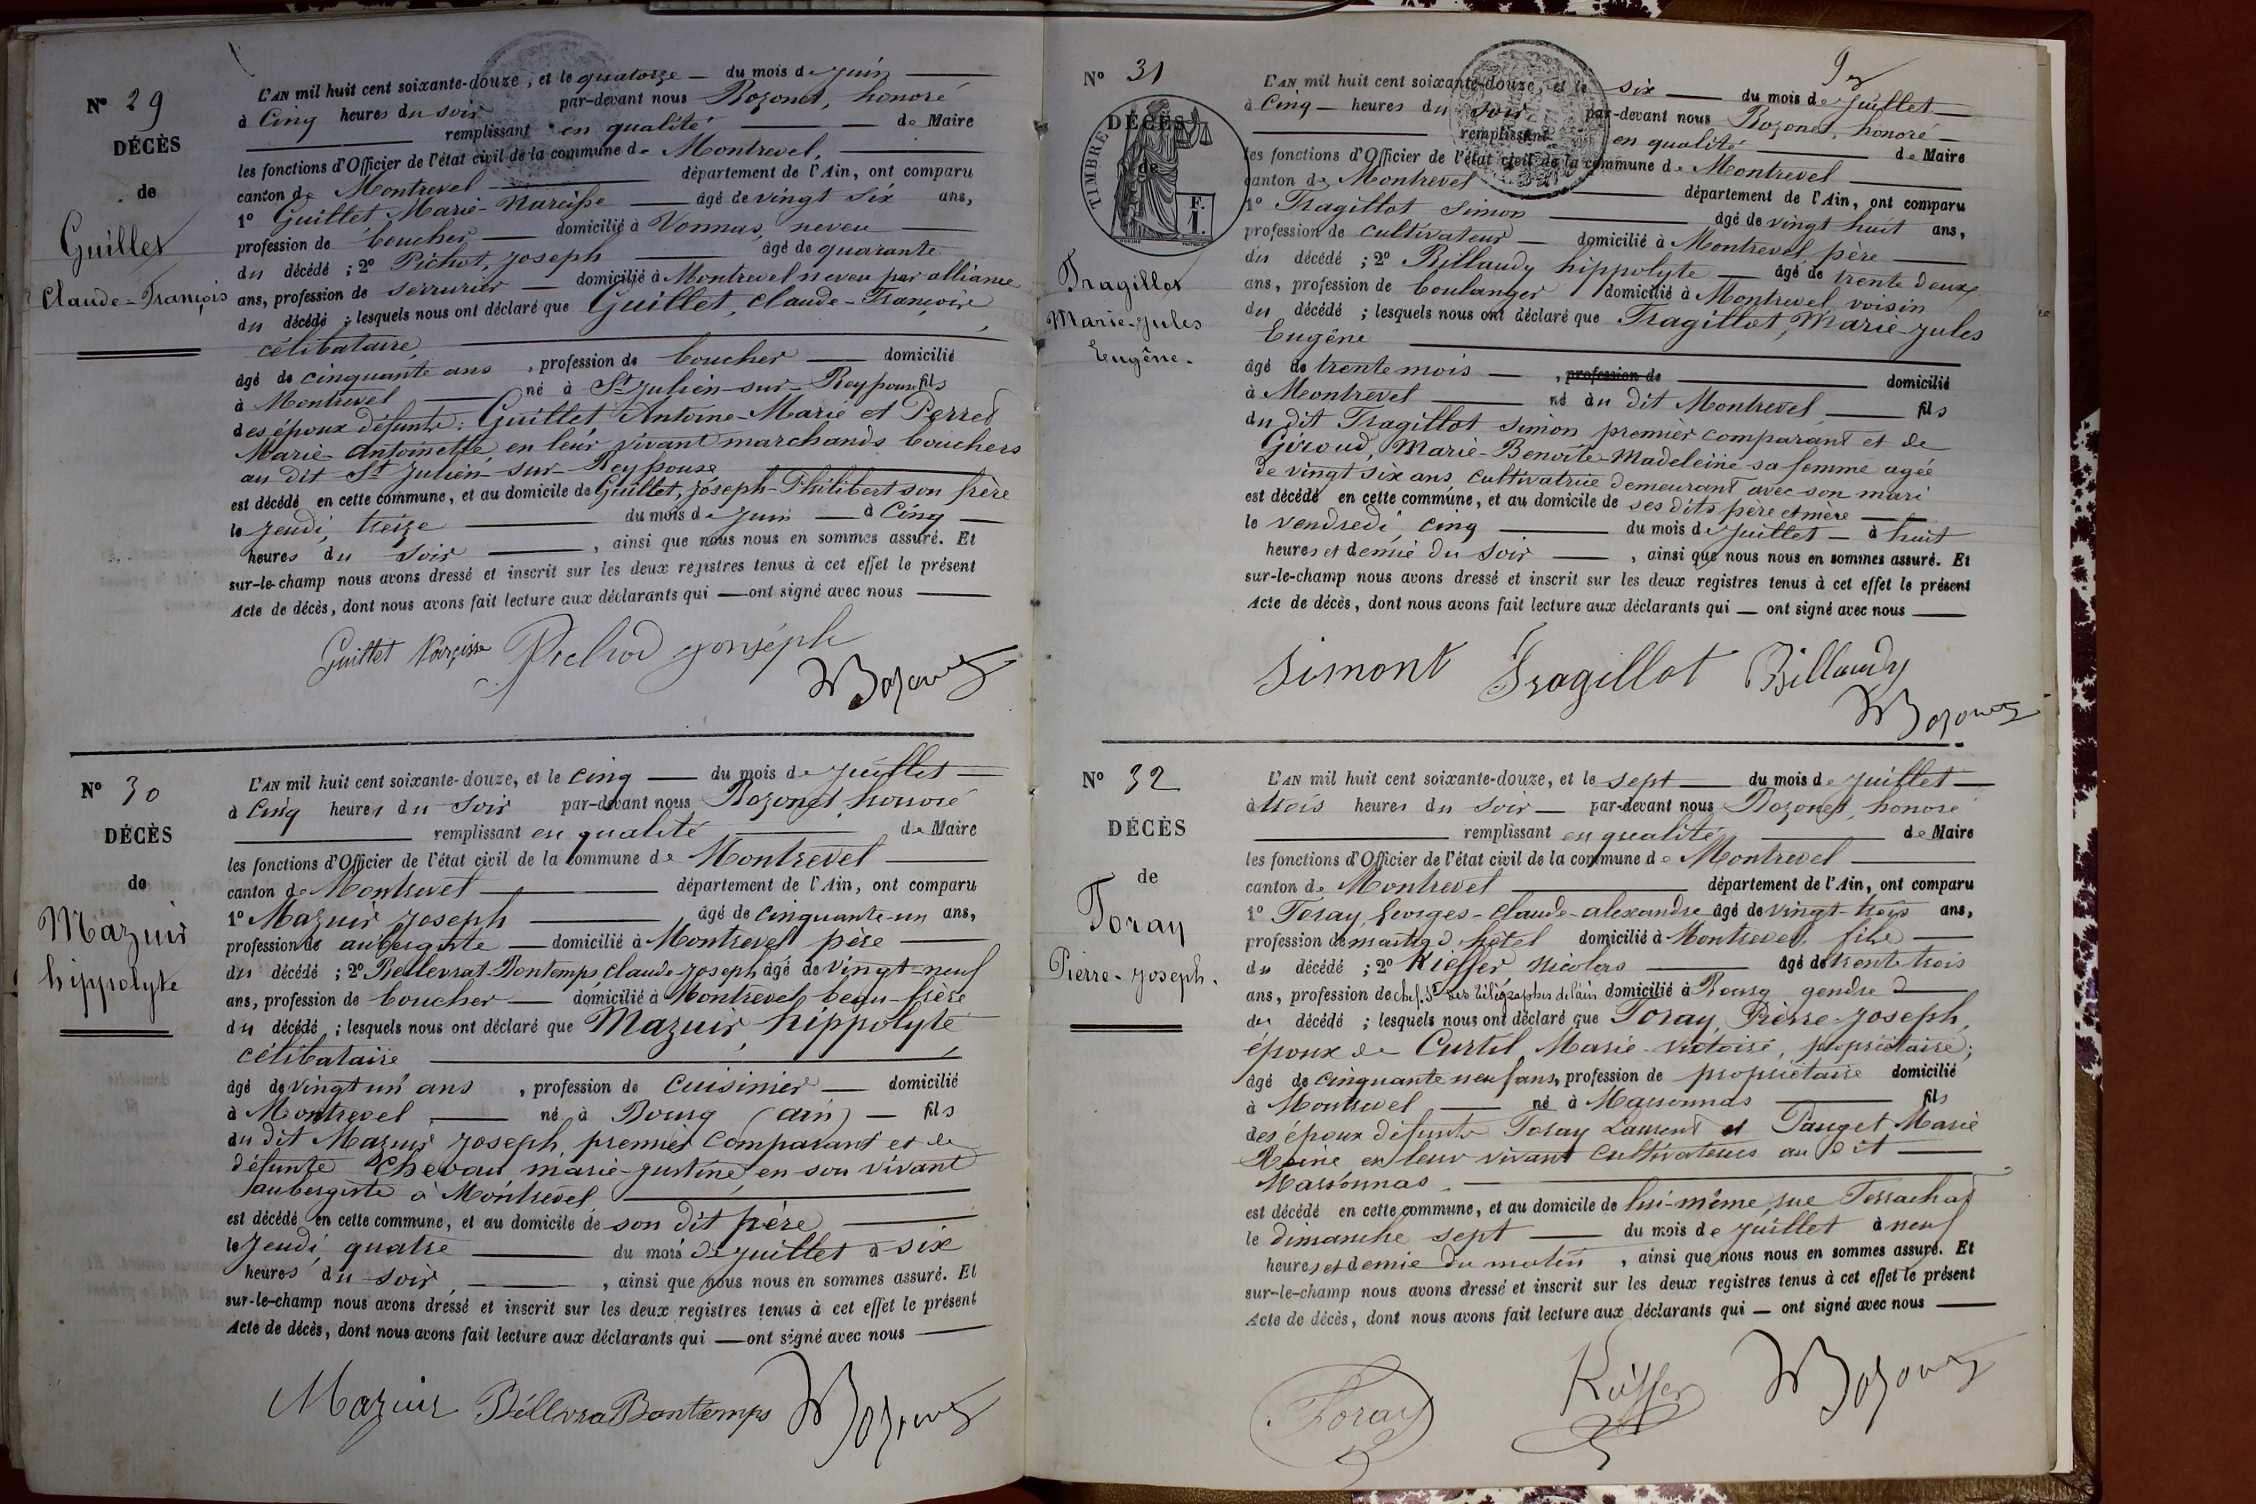 N° 29
DÉCÈS
de
Guillet
Claude-François
L'AN mil huit cent soixante-douze, et le quatorze du mois de juin
à Cinq heures du soir par-devant nous Bozonet, honoré
remplissant en qualité de Maire
les fonctions d'Officier de l'état civil de la commune de Montrevel,
canton de Montrevel département de l'Ain, ont comparu
1° Guillet Marie-Narcisse âgé de vingt six ans,
profession de boucher domicilié à Vonnas, neveu
du décédé ; 2° Pichod, Joseph âgé de quarante
ans, profession de serrurier domicilié à Montrevel neveu par alliance
du décédé ; lesquels nous ont déclaré que Guillet, Claude-François,
célibataire,
âgé de cinquante ans, profession de boucher domicilié
à Montrevel né à St Julien-sur-Reyssouze fils
des époux défunts : Guillet Antoine-Marie et Perret
Marie-Antoinette, en leur vivant marchands bouchers
au dit St Julien-sur-Reyssouze
est décédé en cette commune, et au domicile de Guillet, Joseph-Philibert son frère
le jeudi, treize du mois de juin à Cinq
heures du soir, ainsi que nous nous en sommes assuré. Et
sur-le-champ nous avons dressé et inscrit sur les deux registres tenus à cet effet le présent
Acte de décès, dont nous avons fait lecture aux déclarants qui ont signé avec nous
Guillet Narcisse Pichod Jonséph
Bozonet
N° 30
DÉCÈS
de
Mazuir
hippolyte
L'AN mil huit cent soixante-douze, et le cinq du mois de juillet
à Cinq heures du soir par-devant nous Bozonet, honoré
remplissant en qualité de Maire
les fonctions d'Officier de l'état civil de la commune de Montrevel
canton de Montrevel département de l'Ain, ont comparu
1° Mazuir Joseph âgé de cinquante-un ans,
profession de aubergiste domicilié à Montrevel père
du décédé ; 2° Bellevrat-Bontemps, Claude-Joseph âgé de vingt-neuf
ans, profession de boucher domicilié à Montrevel beau-frère
du décédé ; lesquels nous ont déclaré que Mazuir, hippolyte
célibataire,
âgé de vingt un ans, profession de cuisinier domicilié
à Montrevel né à Bourg (ain) fils
du dit Mazuir Joseph, premier comparant et de
défunte Chevau marie-justine, en son vivant
aubergiste à Montrevel
est décédé en cette commune, et au domicile de son dit père
le Jeudi, quatre du mois de juillet à six
heures du soir, ainsi que nous nous en sommes assuré. Et
sur-le-champ nous avons dressé et inscrit sur les deux registres tenus à cet effet le présent
Acte de décès, dont nous avons fait lecture aux déclarants qui ont signé avec nous
Mazuir Béllvra Bontemps Bozonet
9
N° 31
TIMBRE
F. 1.
DÉCÈS
de
Tragillot
Marie-Jules
Eugène.
L'AN mil huit cent soixante-douze, et le six du mois de juillet
à Cinq heures du soir par-devant nous Bozonet, honoré
remplissant en qualité de Maire
les fonctions d'Officier de l'état civil de la commune de Montrevel
canton de Montrevel département de l'Ain, ont comparu
1° Tragillot Simon âgé de vingt huit ans,
profession de cultivateur domicilié à Montrevel, père
du décédé ; 2° Billaudy hippolyte âgé de trente deux
ans, profession de boulanger domicilié à Montrevel, voisin
du décédé ; lesquels nous ont déclaré que Tragillot, Marie-Jules
Eugène
âgé de trente mois, profession de domicilié
à Montrevel né au dit Montrevel fils
du dit Tragillot Simon premier comparant et de
Giroud, Marie-Benoite-Madeleine sa femme agée
de vingt six ans, cultivatrice demeurant avec son mari
est décédé en cette commune, et au domicile de ses dits père et mère
le vendredi, cinq du mois de juillet à huit
heures et demie du soir, ainsi que nous nous en sommes assuré. Et
sur-le-champ nous avons dressé et inscrit sur les deux registres tenus à cet effet le présent
Acte de décès, dont nous avons fait lecture aux déclarants qui ont signé avec nous
Simont Tragillot Billaudy
Bozonet
N° 32
DÉCÈS
de
Foray
Pierre-Joseph.
L'AN mil huit cent soixante-douze, et le sept du mois de juillet
à trois heures du soir par-devant nous Bozonet, honoré
remplissant en qualité de Maire
les fonctions d'Officier de l'état civil de la commune de Montrevel
canton de Montrevel département de l'Ain, ont comparu
1° Foray Georges-Claude-alexandre âgé de vingt-trois ans,
profession de maître d'hôtel domicilié à Montrevel, fils
du décédé ; 2° Kieffer Nicolas âgé de trente trois
ans, profession de chef. St des télégraphes de l'ain domicilié à Bourg gendre
du décédé ; lesquels nous ont déclaré que Foray, Pierre-Joseph,
époux de Curtil Marie-victoire, propriétaire ;
âgé de cinquante neuf ans, profession de propriétaire domicilié
à Montrevel né à Marsonnas fils
des époux défunts Foray Laurent et Pauget Marie
Reine en leur vivant cultivateurs au dit
Marsonnas.
est décédé en cette commune, et au domicile de lui-même, rue
le dimanche sept du mois de juillet à neuf
heures et demie du matin, ainsi que nous nous en sommes assuré. Et
sur-le-champ nous avons dressé et inscrit sur les deux registres tenus à cet effet le présent
Acte de décès, dont nous avons fait lecture aux déclarants qui ont signé avec nous
Foray Kieffer Bozonet